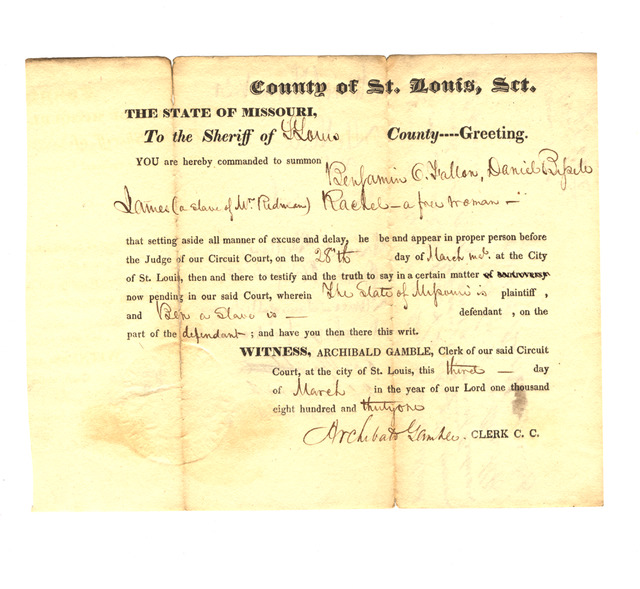 County of St. Louis, Sct.
THE STATE OF MISSOURI,
To the Sheriff of St Louis County----Greeting.
YOU are hereby commanded to summon Benjamin O. Fallon, Daniel Bissell
James (a slave of Mr Redman) Rachel - a free woman -
that setting aside all manner of excuse and delay, he be and appear in proper person before
the Judge of our Circuit Court, on the 28th day of March inst. at the City
of St. Louis, then and there to testify and the truth to say in a certain matter of controversy
now pending in our said Court, wherein The State of Missouri is plaintiff ,
and Ben a Slave is — defendant , on the
part of the defendant ; and have you then there this writ.
WITNESS, ARCHIBALD GAMBLE, Clerk of our said Circuit
Court, at the city of St. Louis, this third — day
of March in the year of our Lord one thousand
eight hundred and thirty one
Archibald Gamble. CLERK C. C.